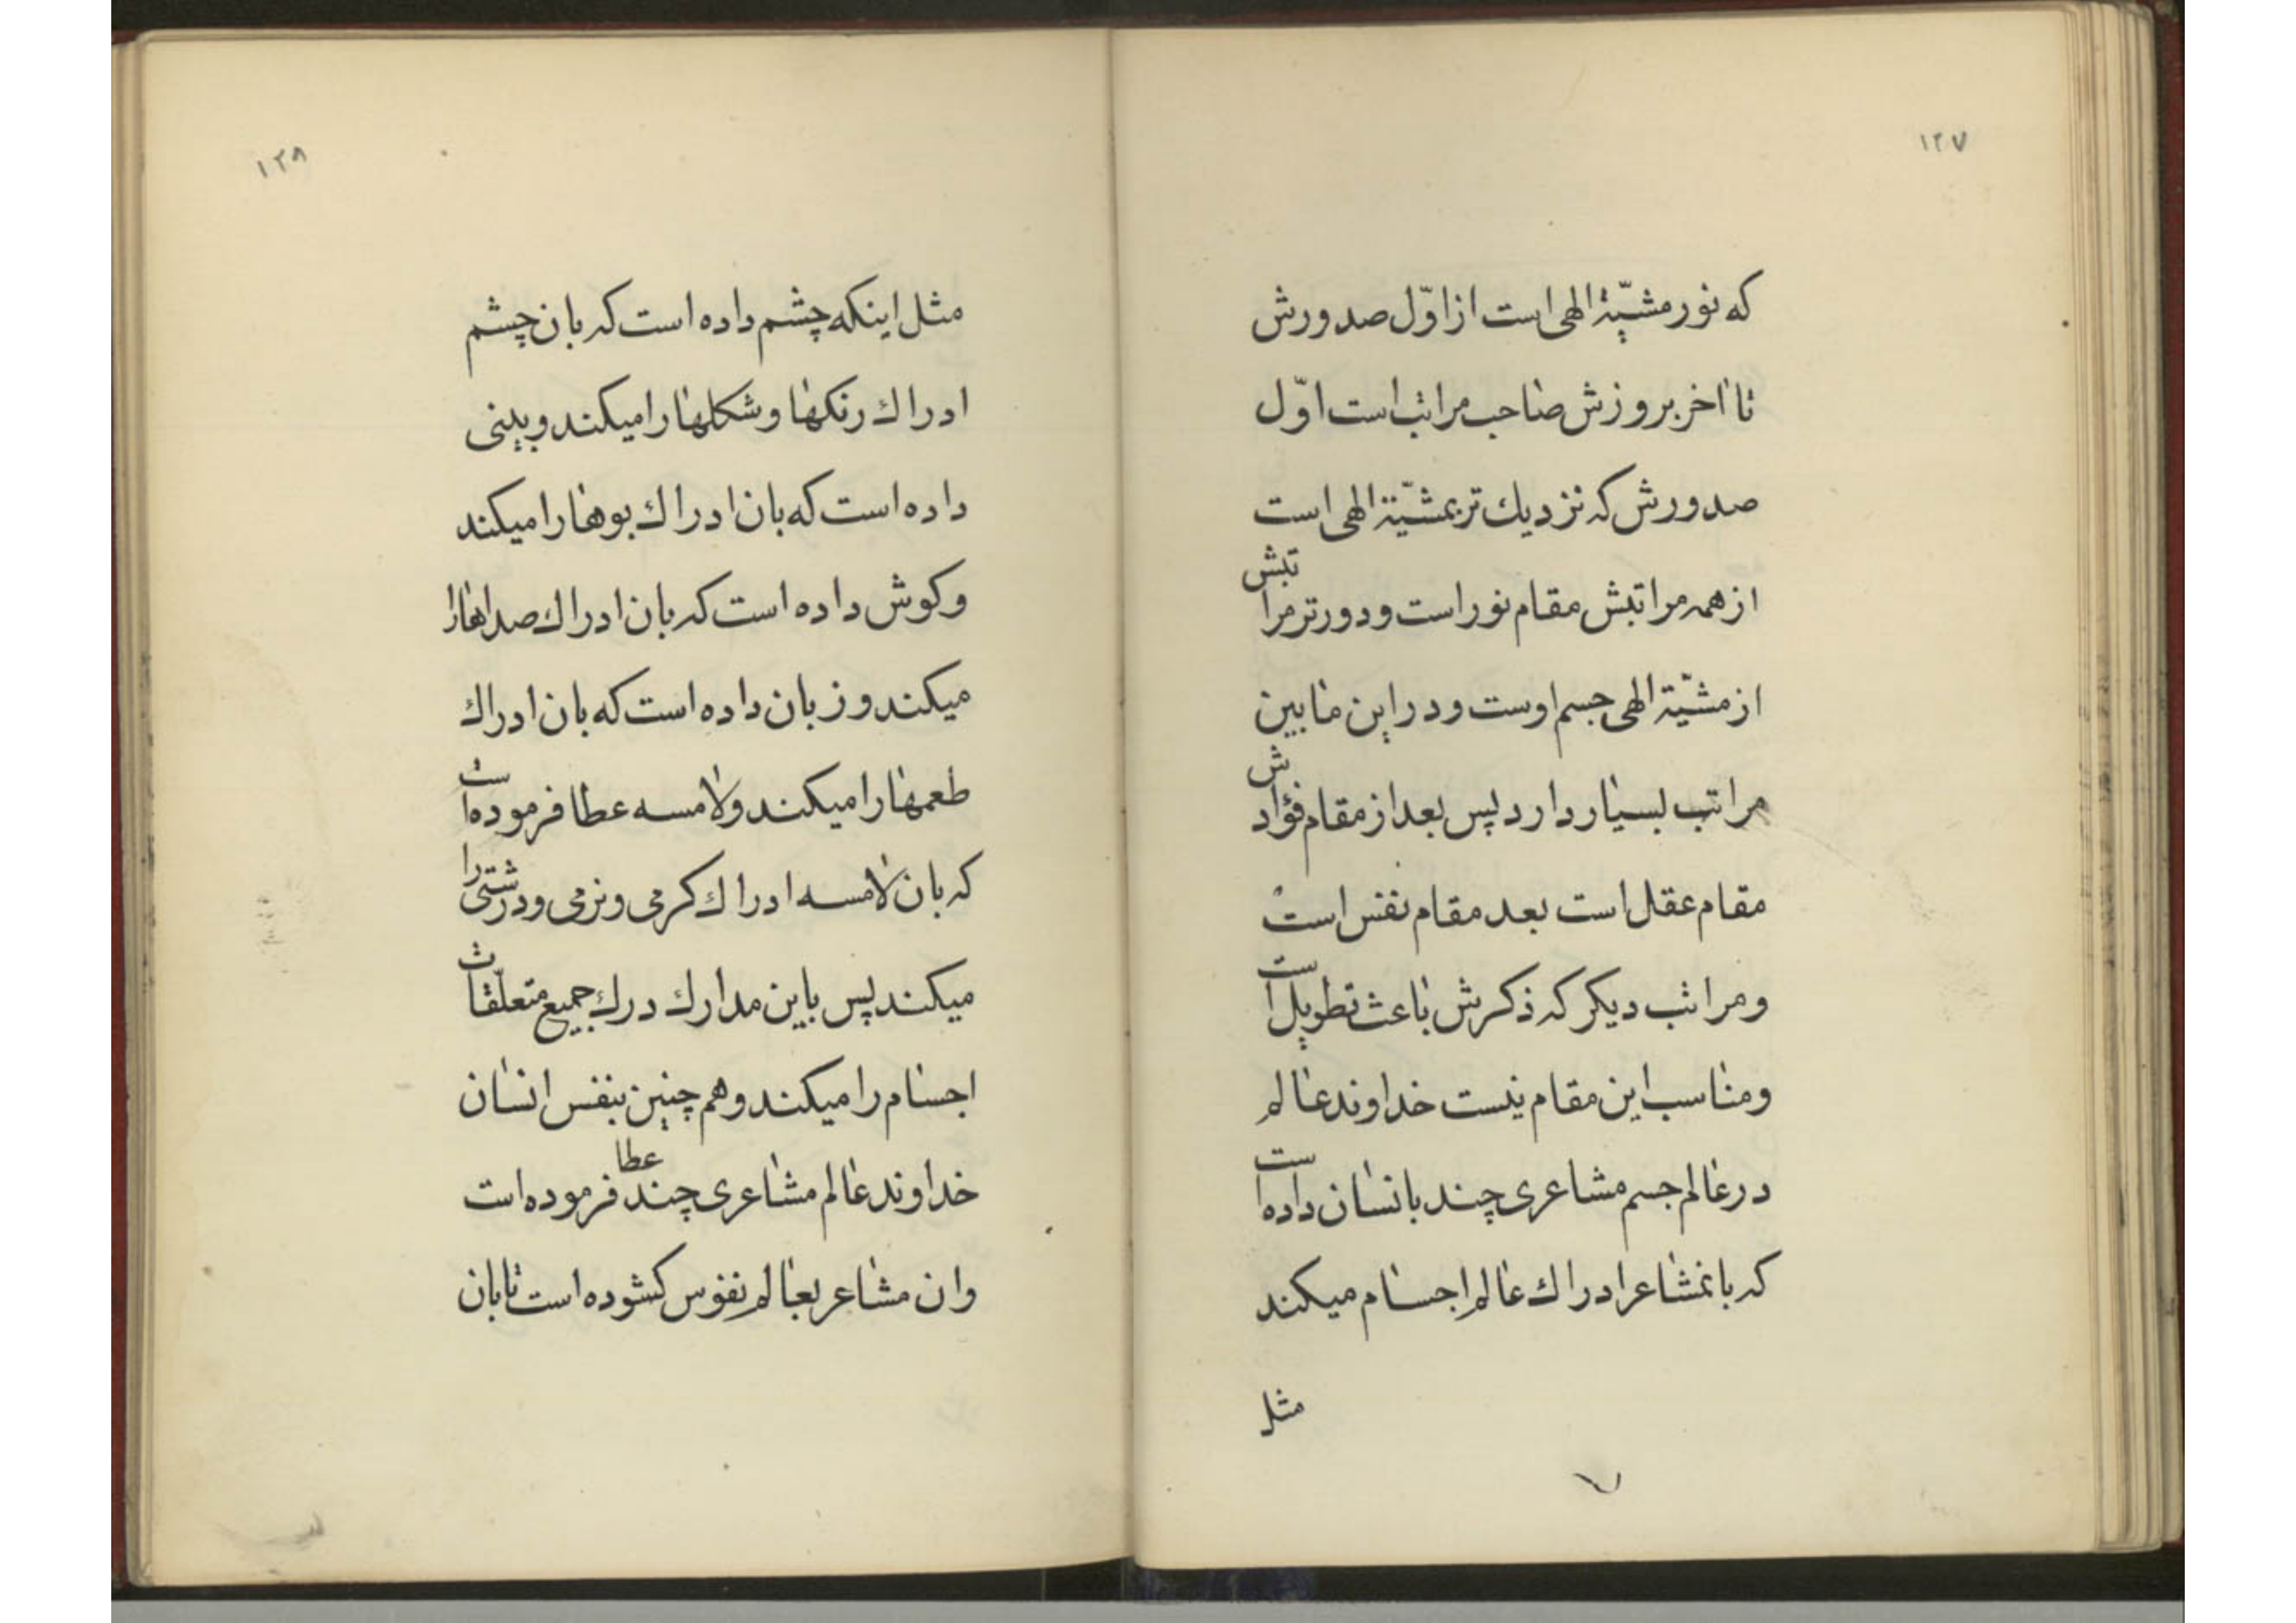 ۱۲۷
که نور مشیّة الهی است از اوّل صدورش
تا اخر بروزش صاحب مراتب است اوّل
صدورش که نزدیك تر بمشیّة الهی است
از همه مراتبش مقام نور است و دورتر مراتبش
از مشیّة الهی جسم اوست و در این مابین
مراتب بسیار دارد پس بعد از مقام فؤادش
مقام عقل است بعد مقام نفس است
و مراتب دیکر که ذکرش باعث تطویل است
و مناسب این مقام نیست خداوند عالم
در عالم جسم مشاعری چند بانسان داده است
که بانمشاعر ادراك عالم اجسام میکند
مثل
۱۲۸
مثل اینکه چشم داده است که بان چشم
ادراك رنکها و شکلها را میکند و بینی
داده است که بان ادراك بوها را میکند
و کوش داده است که بان ادراك صداها را
میکند و زبان داده است که بان ادراك
طعمها را میکند و لامسه عطا فرموده است
که بان لامسه ادراك کرمی و نرمی و درشتی را
میکند پس باین مدارك درك جمیع متعلّقات
اجسام را میکند و هم چنین بنفس انسان
خداوند عالم مشاعری چند عطا فرموده است
و ان مشاعر بعالم نفوس کشوده است تا بان